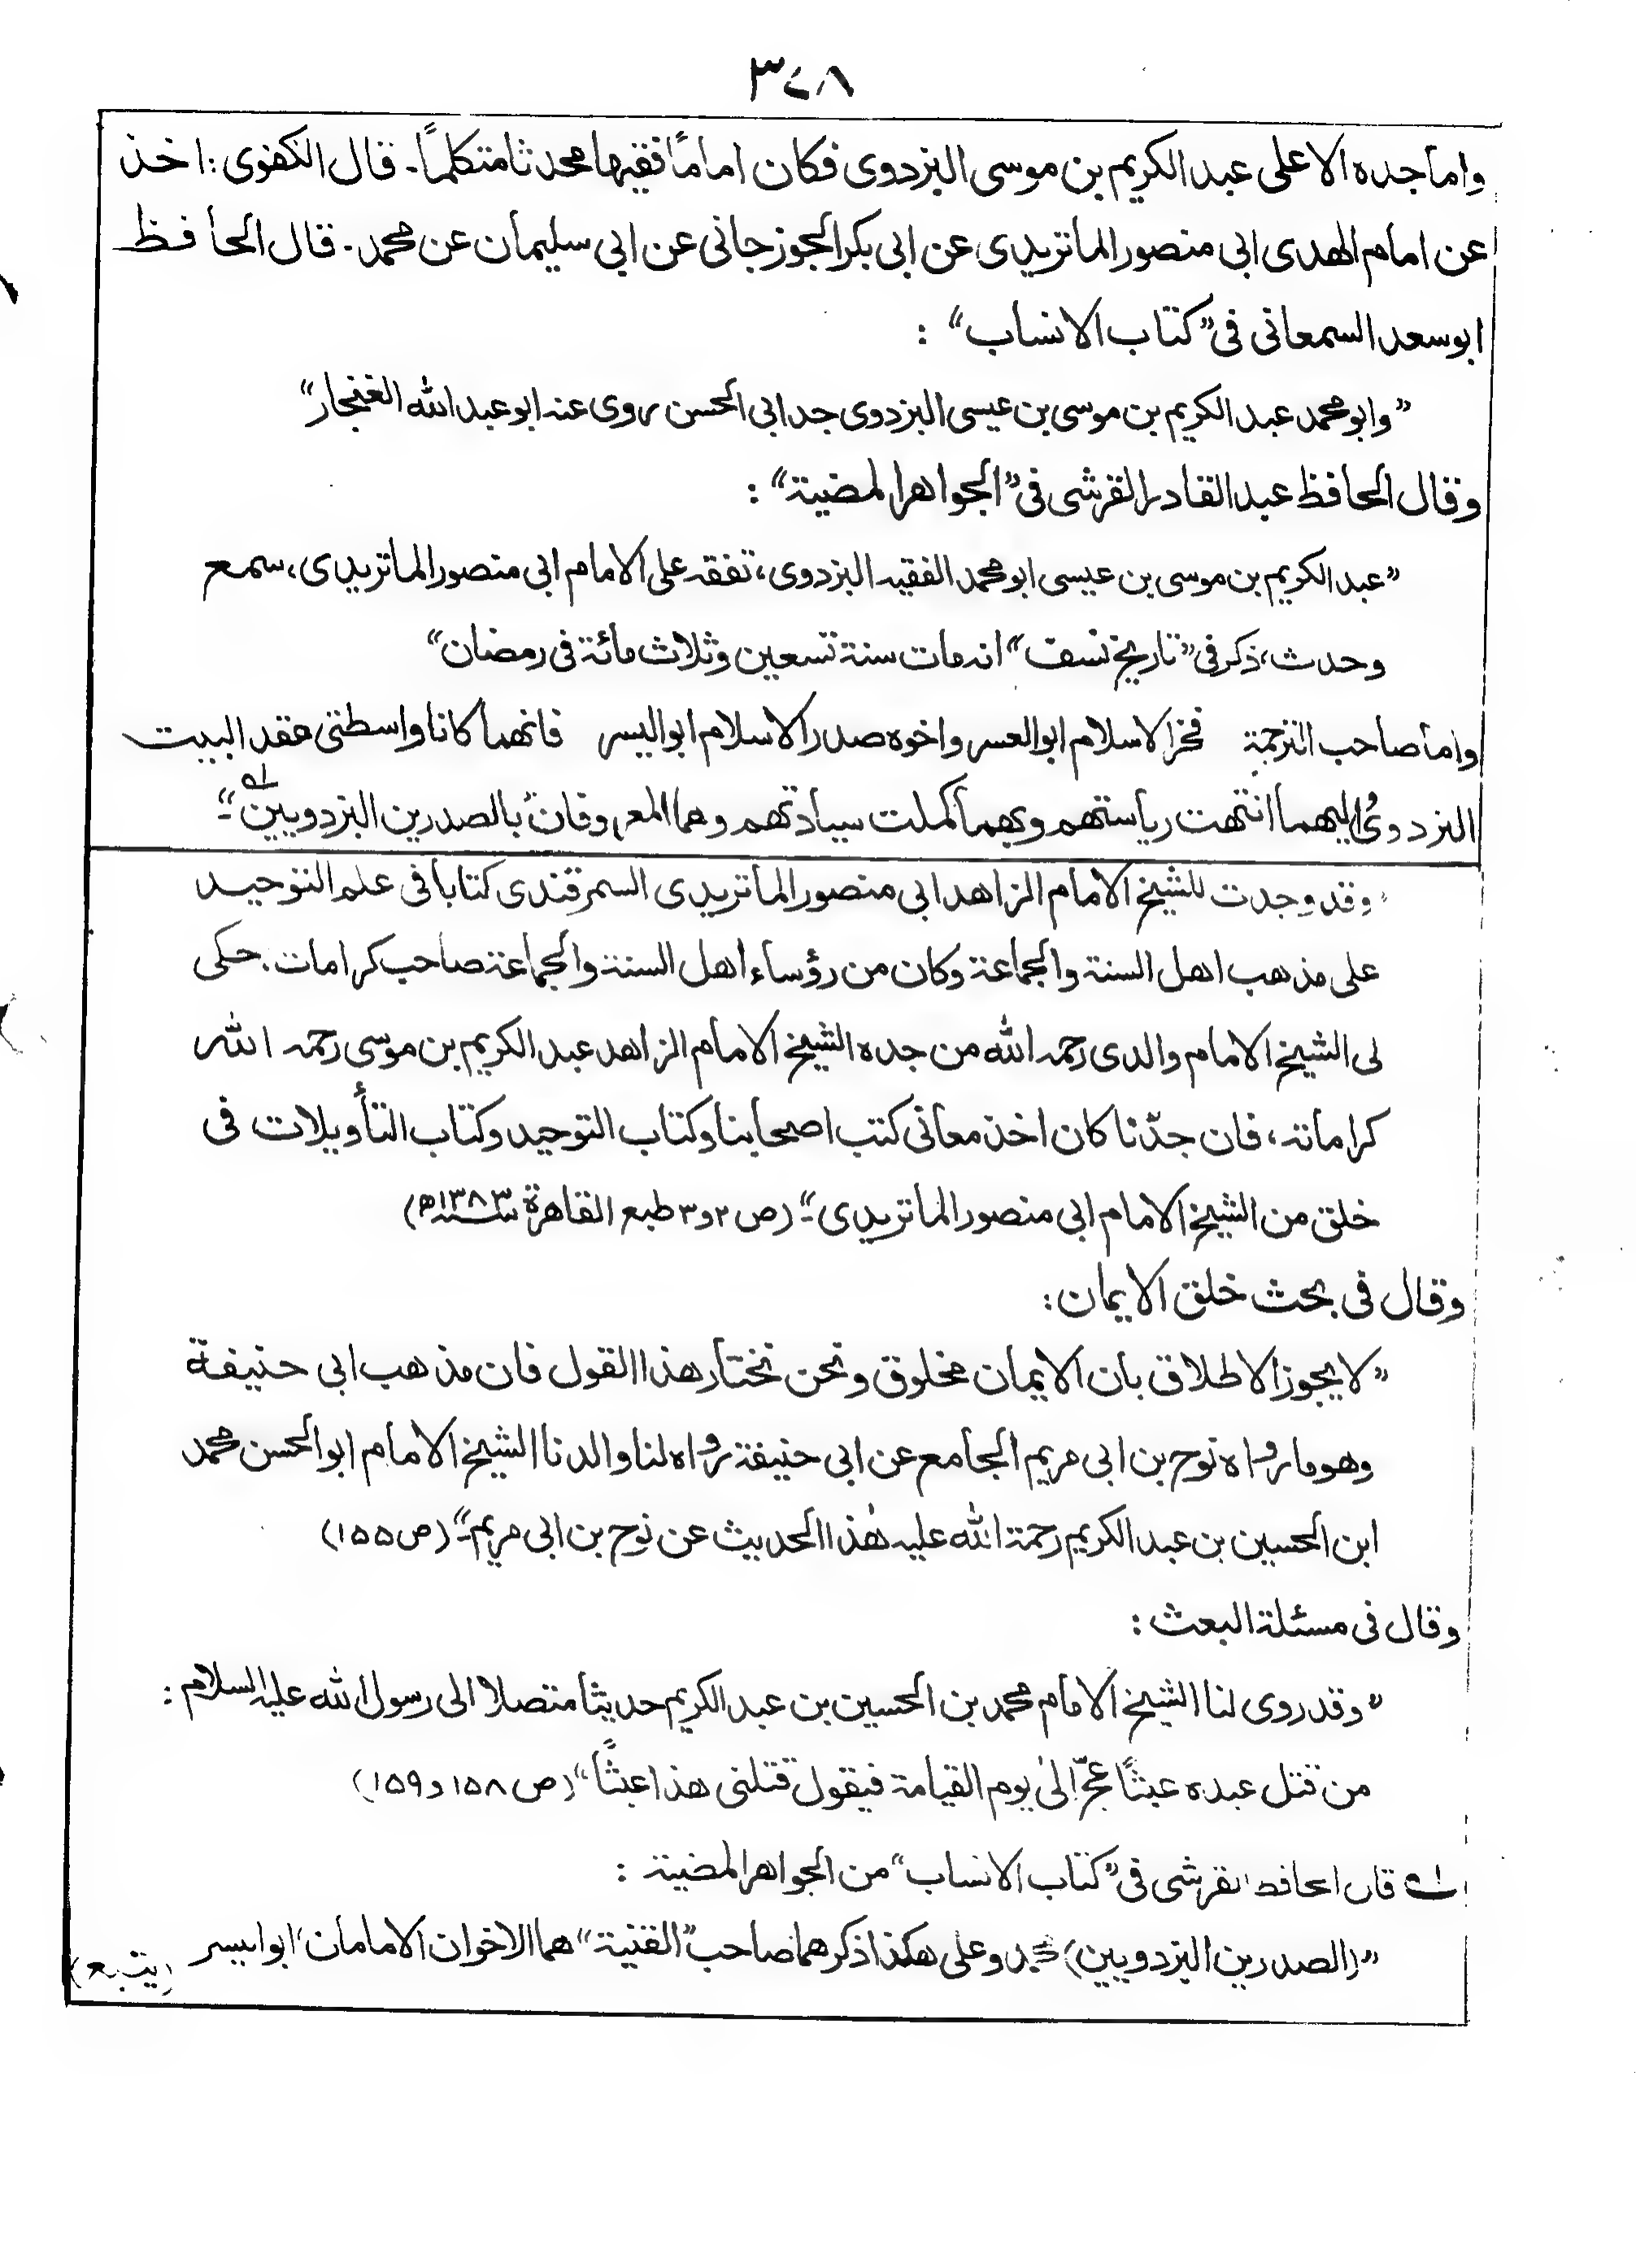 ٣٤٨
واما جده الاعلى عبد الكريم بن موسى البزدوى فكان امامًا فقيها محدثا متكلمًا۔ قال الكفوى: اخذ
عن امام الهدى ابى منصور الماتريدى عن ابى بكر الجوزجانى عن ابى سليمان عن محمد۔ قال الحافظ
ابو سعد السمعانى فى "كتاب الانساب" :
"وابو محمد عبد الكريم بن موسى بن عيسى البزدوى جد ابى الحسن روى عنه ابو عبد الله الغنجار"
وقال الحافظ عبد القادر القرشى فى "الجواهر المضية" :
"عبد الكريم بن موسى بن عيسى ابو محمد الفقيه البزدوى، تفقه على الامام ابى منصور الماتريدى، سمع
وحدث، ذكر فى "تاريخ نسف" انه مات سنة تسعين وثلاث مائة فى رمضان"
واما صاحب الترجمة فخر الاسلام ابو العسر واخوه صدر الاسلام ابو اليسر فانهما كانا واسطتى عقد البيت
البزدوىُ اليهما انتهت رياستهم وبهما كملت سيادتهم وهما المعروفان بالصدرين البزدويين"۔ ؎۱
"وقد وجدت للشيخ الامام الزاهد ابى منصور الماتريدى السمرقندى كتابا فى علم التوحيد
على مذهب اهل السنة والجماعة وكان من رؤساء اهل السنة والجماعة صاحب كرامات. حكى
لى الشيخ الامام والدى رحمه الله من جده الشيخ الامام الزاهد عبد الكريم بن موسى رحمه الله
كراماته، فان جدّنا كان اخذ معانى كتب اصحابنا وكتاب التوحيد وكتاب التأويلات فى
خلق من الشيخ الامام ابى منصور الماتريدى"۔ (ص ۲ و ۳ طبع القاهرة سنة ۱۳۸۳ه)
وقال فى بحث خلق الايمان:
"لا يجوز الاطلاق بان الايمان مخلوق ونحن نختار هذا القول فان مذهب ابى حنيفة
وهو ما رواه نوح بن ابى مريم الجامع عن ابى حنيفة رواه لنا والدنا الشيخ الامام ابو الحسن محمد
ابن الحسين بن عبد الكريم رحمة الله عليه هٰذا الحديث عن نوح بن ابى مريم"۔ (ص ۱۵۵)
وقال فى مسئلة البعث :
"وقد روى لنا الشيخ الامام محمد بن الحسين بن عبد الكريم حديثا متصلا الى رسول الله عليه السلام :
من قتل عبده عبثًا عجّ الىٰ يوم القيامة فيقول قتلنى هذا عبثًا" (ص ۱۵۸ و ۱۵۹)
؎۱ قال الحافظ القرشى فى "كتاب الانساب" من الجواهر المضية :
"(الصدرين البزدويين) محمد وعلى هكذا ذكرهما صاحب "القنية" هما الاخوان الامامان، ابو اليسر (يتبع)